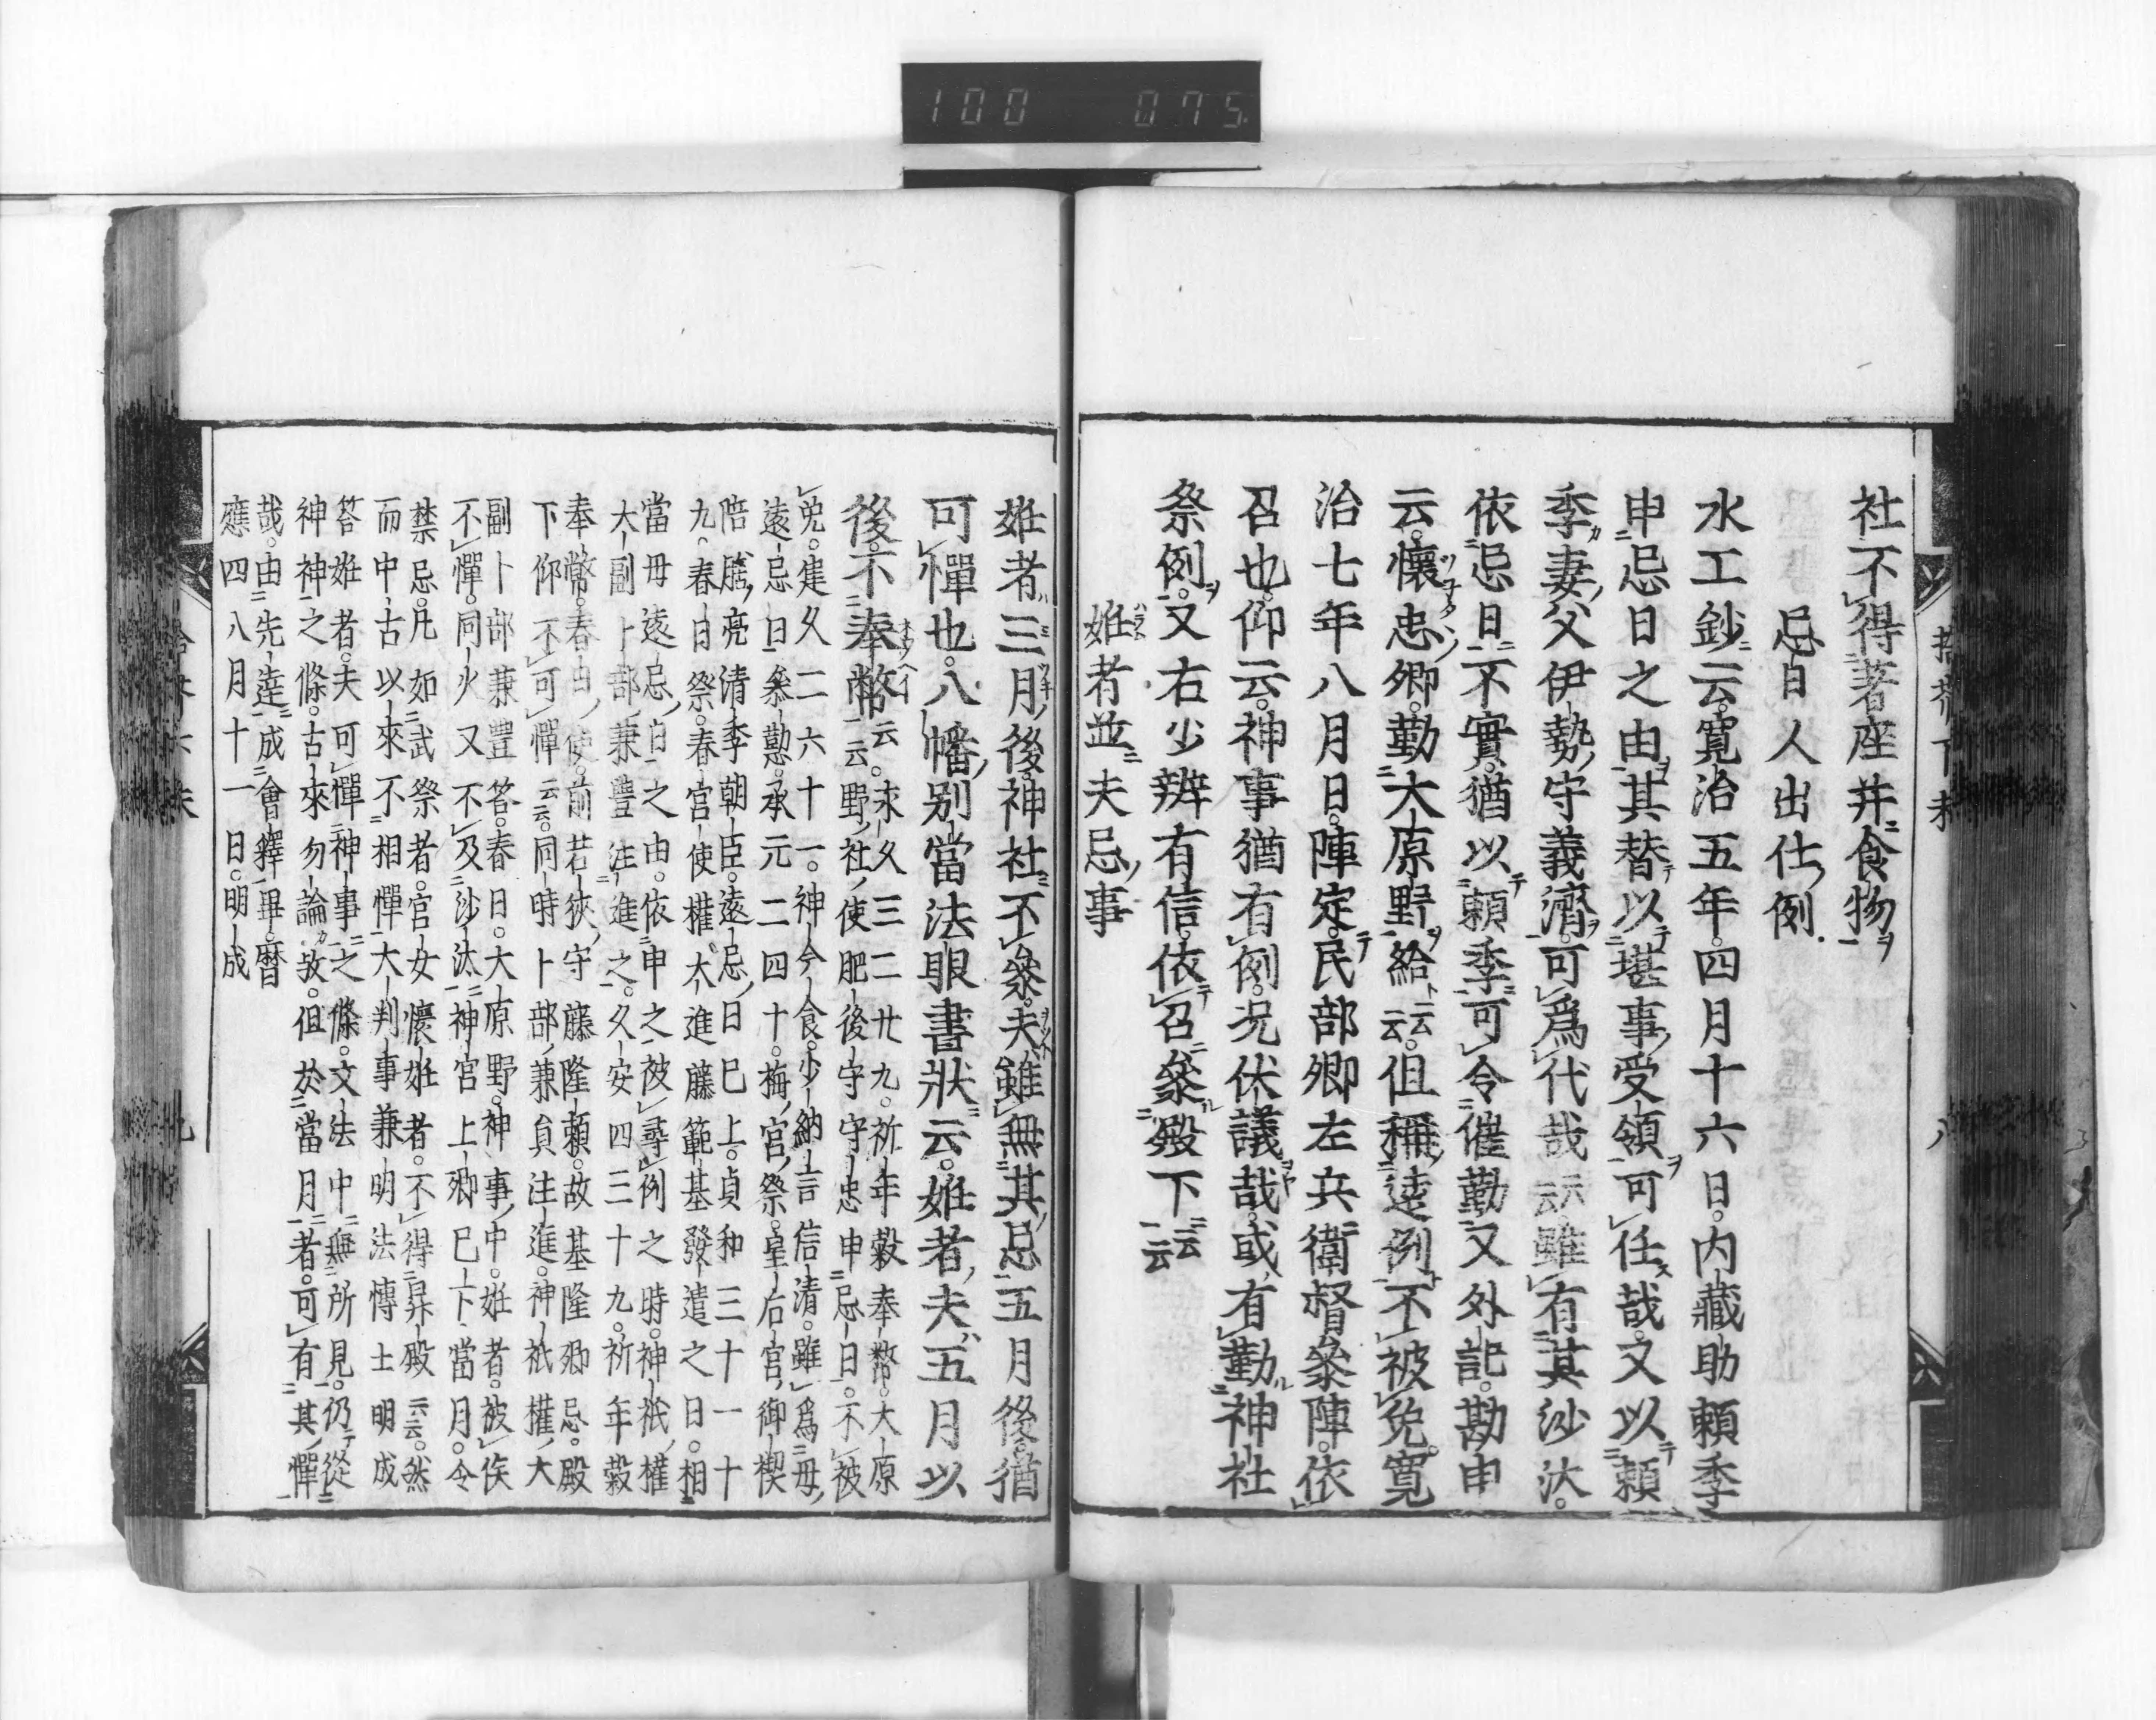 100 075
社不得著座并食物
忌日人出仕例
水工鈔云寛治五年四月十六日内藏助頼季
申忌日之由其替以堪事受領可任哉又以頼
季妻父伊勢守義濟可為代哉云云雖有其沙汰
依忌日不實猶以頼季可令催勤又外記勘申
云懷忠卿勤大原野給云云但稱遠例不被免寛
治七年八月日陣定民部卿左兵衛督參陣依
召也仰云神事猶有例况休議哉或有勤神社
祭例又右少辨有信依召參殿下云云
姙者並夫忌事
姙者三月後神社不參夫雖無其忌五月後猶
可憚也八幡別當法眼書狀云姙者夫五月以
後不奉幣云云永久三二廿九祈年穀奉幣大原
野社使肥後守守忠申忌日不被
免建久二六十一神今食少納言信清雖為母
遠忌日參勤承元二四十梅宮祭皇后宮御禊
陪膳亮清季朝臣遠忌日巳上貞和三十一十
九春日祭春宮使權大進藤範基發遣之日相
當母遠忌日之由依申之被尋例之時神祇權
大副卜部兼豐注進之久安四三十九祈年穀
奉幣春日使前若狹守藤隆頼故基隆卿忌殿
下仰不可憚云云同時卜部兼貞注進神祇權大
副卜部兼豐答春日大原野神事中姙者被俟
不憚同火又不及沙汰神宮上卿巳下當月令
禁忌凡如武祭者官女懷姙者不得昇殿云云然
而中古以來不相憚大判事兼明法博士明成
答姙者夫可憚神事之條文法中無所見仍從
神神之條古來勿論故但於當月者可有其憚
哉由先達成會釋畢暦
應四八月十一日明成